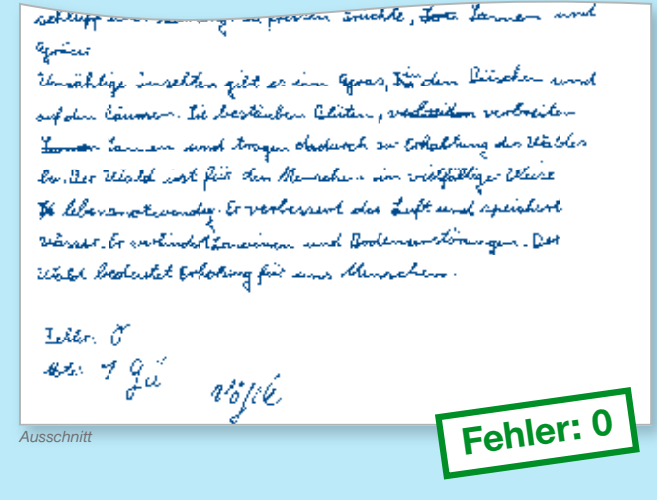 Früchte, Samen und
Gräser
Unzählige Insekten gibt es im Gras, in den Büschen und
auf den Bäumen. Sie bestäuben Blüten, verbreiten
Samen und tragen dadurch zur Erhaltung des Waldes
bei. Der Wald ist für den Menschen in vielfältiger Weise
lebensnotwendig. Er verbessert die Luft und speichert
Wasser. Er verhindert Lawinen und Bodenzerstörungen. Der
Wald bedeutet Erholung für uns Menschen.
Fehler: 0
Note: 1
Ausschnitt
Fehler: 0